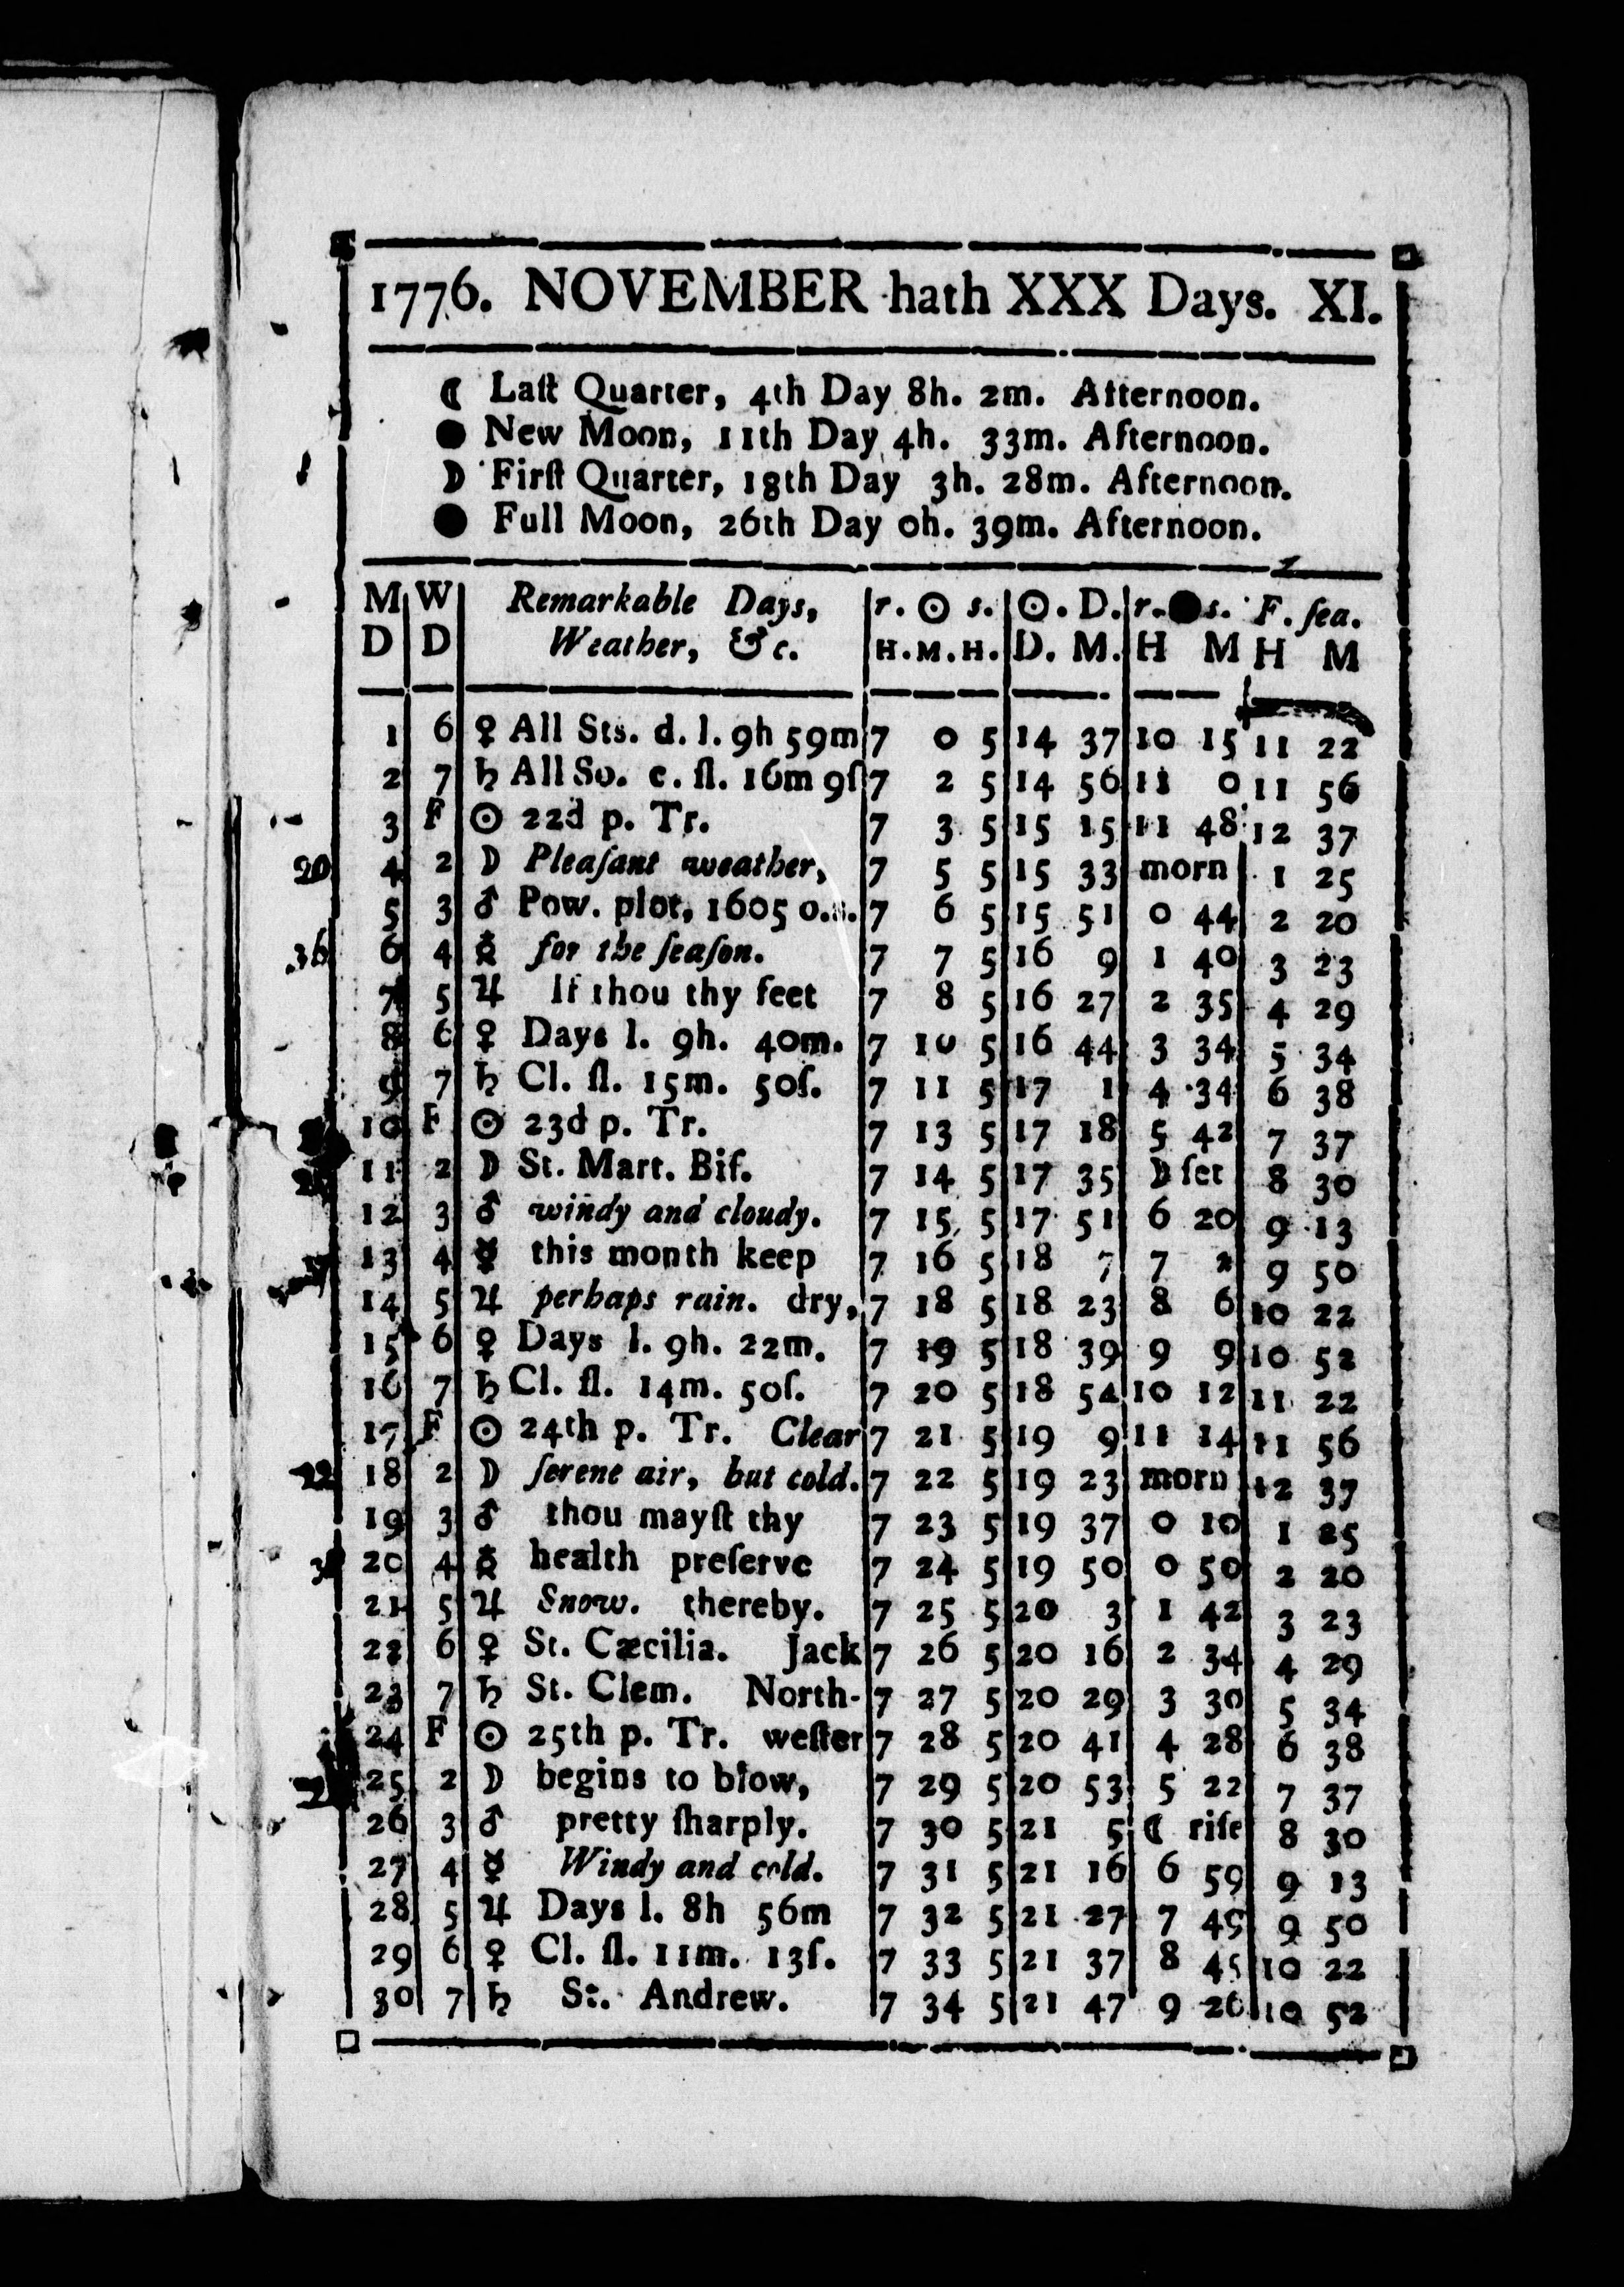 1776. NOVEMBER hath XXX Days. XI.
☾ Laſt Quarter, 4th Day 8h. 2m. Afternoon.
● New Moon, 11th Day 4h. 33m. Afternoon.
☽ Firſt Quarter, 18th Day 3h. 28m. Afternoon.
● Full Moon, 26th Day 0h. 39m. Afternoon.
M W Remarkable Days, r. ☉ s. ☉. D. r. ● s. F. ſea.
D D Weather, &c. H. M. H. D. M. H M H M
1 6 ♀ All Sts. d. l. 9h 59m 7 0 5 14 37 10 15 11 22
2 7 ♄ All So. c. fl. 16m 9ſ 7 2 5 14 56 11 0 11 56
3 F ☉ 22d p. Tr. 7 3 5 15 15 11 48 12 37
20 4 2 ☽ Pleaſant weather, 7 5 5 15 33 morn 1 25
5 3 ♂ Pow. plot, 1605 o.s. 7 6 5 15 51 0 44 2 20
36 6 4 ☿ for the ſeaſon. 7 7 5 16 9 1 40 3 23
7 5 ♃ If thou thy feet 7 8 5 16 27 2 35 4 29
8 6 ♀ Days l. 9h. 40m. 7 10 5 16 44 3 34 5 34
9 7 ♄ Cl. fl. 15m. 50ſ. 7 11 5 17 1 4 34 6 38
10 F ☉ 23d p. Tr. 7 13 5 17 18 5 42 7 37
11 2 ☽ St. Mart. Biſ. 7 14 5 17 35 ☽ ſet 8 30
12 3 ♂ windy and cloudy. 7 15 5 17 51 6 20 9 13
13 4 ☿ this month keep 7 16 5 18 7 7 9 50
14 5 ♃ perhaps rain. dry, 7 18 5 18 23 8 6 10 22
15 6 ♀ Days l. 9h. 22m. 7 19 5 18 39 9 9 10 52
16 7 ♄ Cl. fl. 14m. 50ſ. 7 20 5 18 54 10 12 11 22
17 F ☉ 24th p. Tr. Clear 7 21 5 19 9 11 14 11 56
22 18 2 ☽ ſerene air, but cold. 7 22 5 19 23 morn 12 37
19 3 ♂ thou mayſt thy 7 23 5 19 37 0 10 1 25
20 4 ☿ health preſerve 7 24 5 19 50 0 50 2 20
21 5 ♃ Snow. thereby. 7 25 5 20 3 1 42 3 23
22 6 ♀ St. Cæcilia. Jack 7 26 5 20 16 2 34 4 29
23 7 ♄ St. Clem. North- 7 27 5 20 29 3 30 5 34
24 F ☉ 25th p. Tr. weſter 7 28 5 20 41 4 28 6 38
25 2 ☽ begins to blow, 7 29 5 20 53 5 22 7 37
26 3 ♂ pretty ſharply. 7 30 5 21 5 ☾ riſe 8 30
27 4 ☿ Windy and cold. 7 31 5 21 16 6 59 9 13
28 5 ♃ Days l. 8h 56m 7 32 5 21 27 7 49 9 50
29 6 ♀ Cl. fl. 11m. 13ſ. 7 33 5 21 37 8 45 10 22
30 7 ♄ St. Andrew. 7 34 5 21 47 9 26 10 52